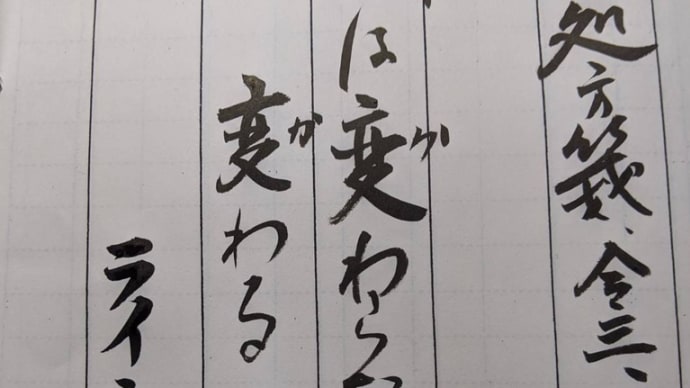 処方箋、令三、
は変わらな
変わる
ライ